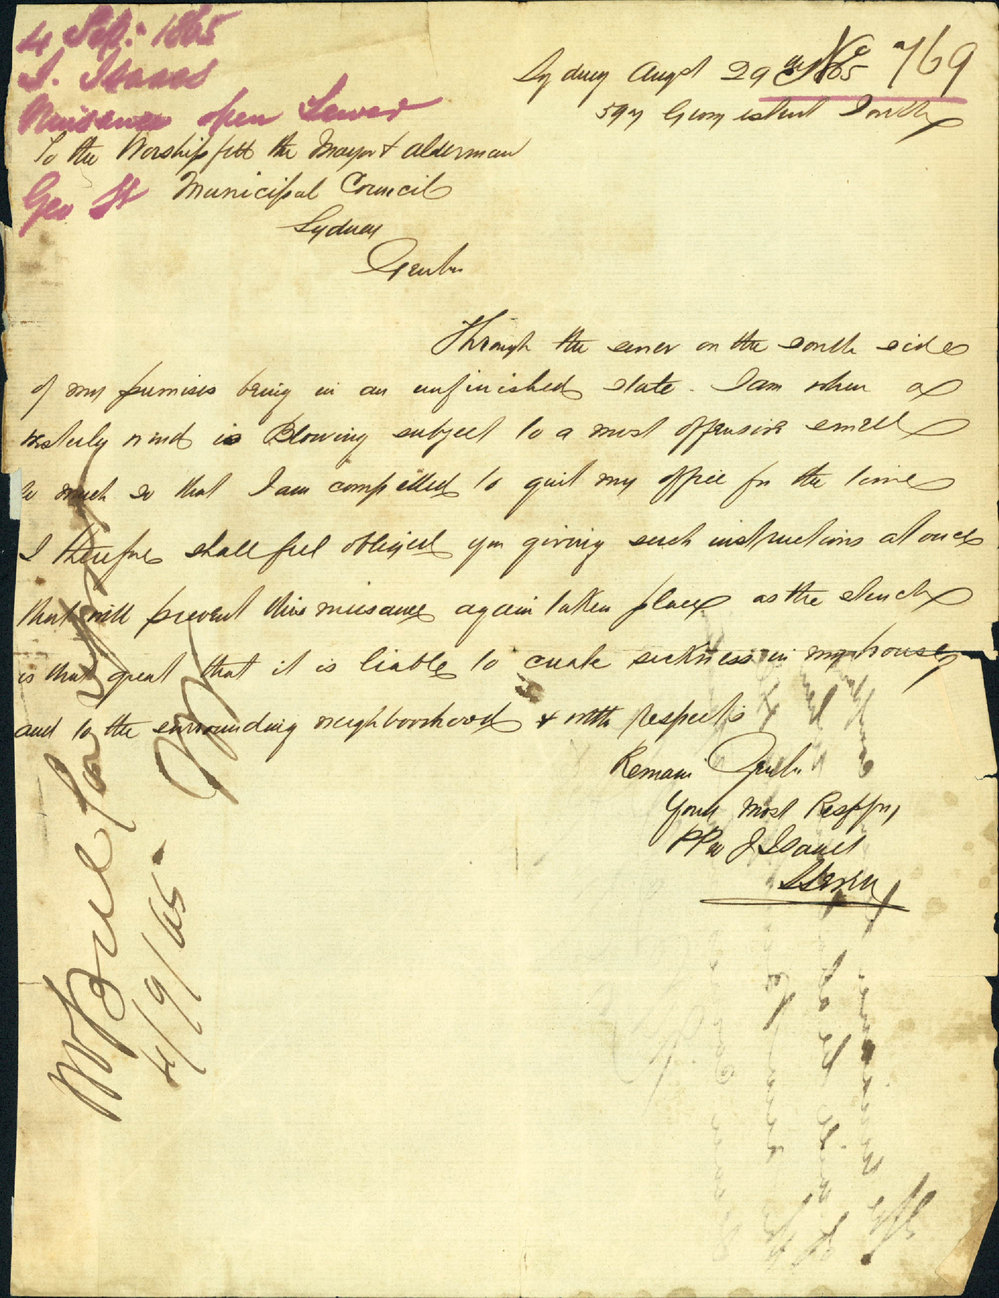 4 Sep. 1865
I. Isaacs
Nuisance open Sewer
Geo St
No 769
Sydney Augst 29th 1865
597 George street South
To the Worshipfull the Mayor & alderman
Municipal Council
Sydney
Gentn
Through the sewer on the south side
of my premises being in an unfinished state. I am when a
westerly wind is Blowing subject to a most offensive smell
so much so that I am compelled to quit my office for the time
I therefore shall feel obliged your giving such instructions at once
that will prevent this nuisance again taken place as the stench
is that great that it is liable to create sickness in my house
and to the surrounding neighboorhood & with respects
Remain Gentn
Yours most Respfy
PPro J Isaacs
4/9/65